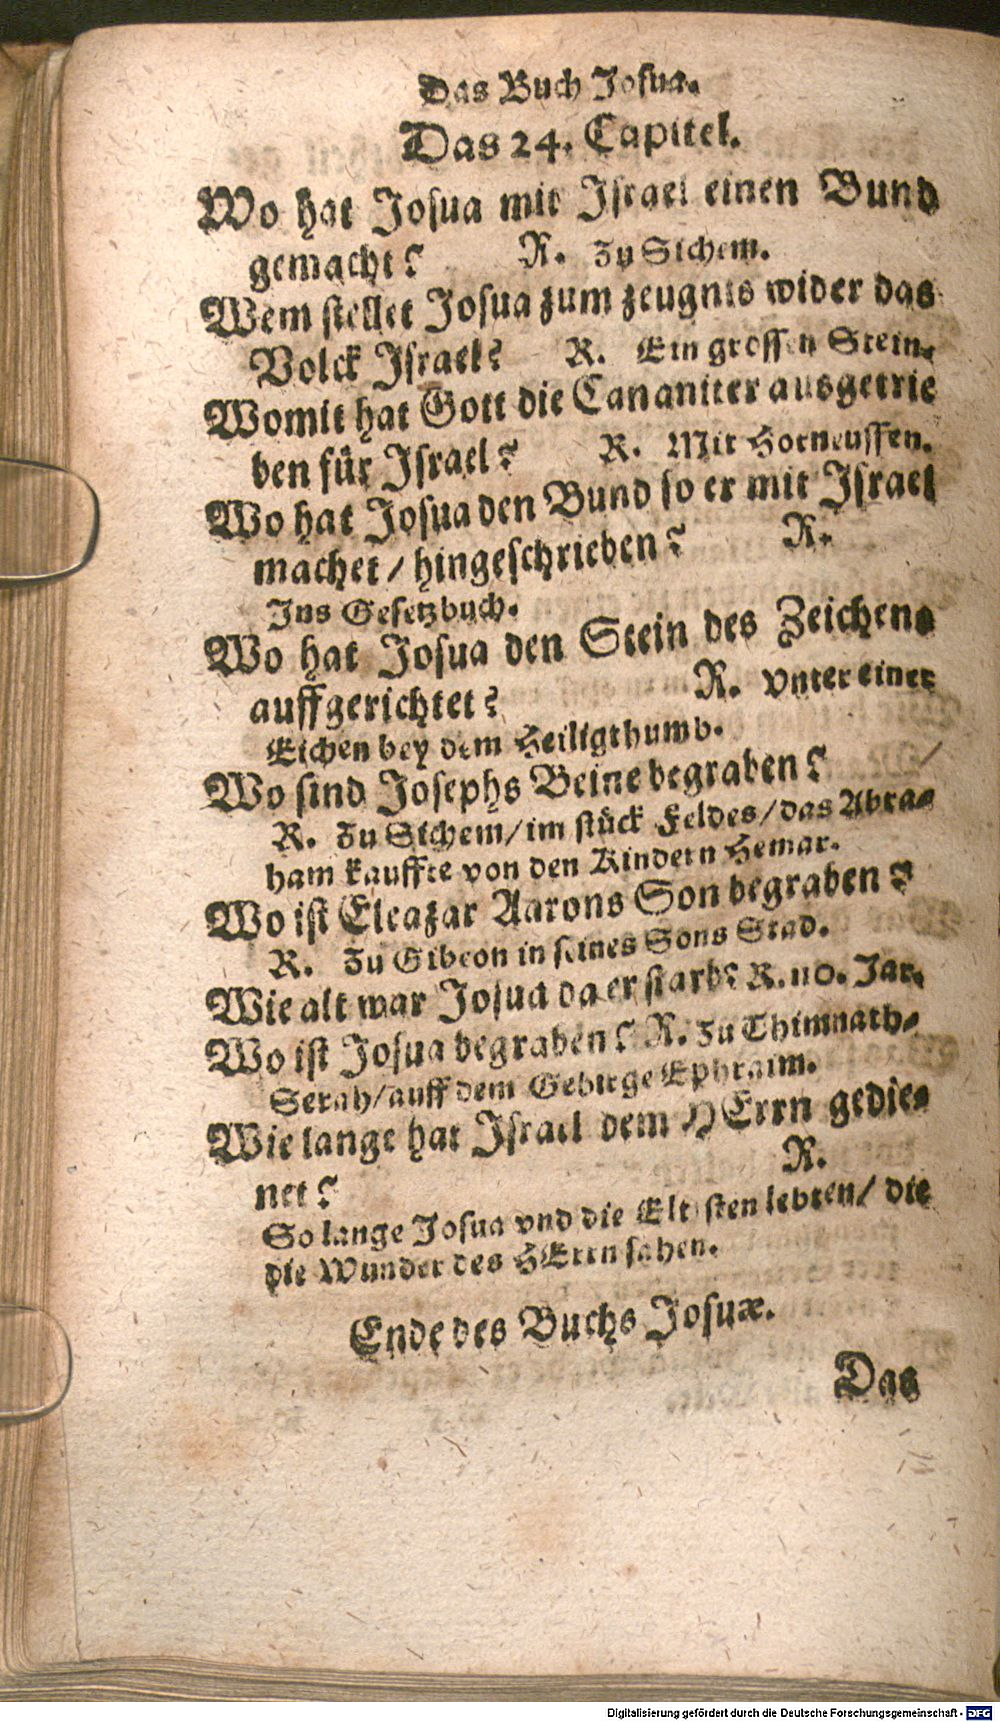 Das Buch Josuæ.
Das 24. Capitel.
Wo hat Josua mit Israel einen Bund
gemacht? R. Zu Sichem.
Wem stellet Josua zum zeugnis wider das
Volck Israel? R. Ein grossen Stein.
Womit hat Gott die Cananiter ausgetrie
ben für Israel? R. Mit Horneussen.
Wo hat Josua den Bund so er mit Israel
machet / hingeschrieben? R.
Ins Gesetzbuch.
Wo hat Josua den Stein des Zeichens
auffgerichtet? R. Vnter einer
Eichen bey dem Heiligthumb.
Wo sind Josephs Beine begraben?
R. Zu Sichem / im stück Feldes / das Abra-
ham kauffte von den Kindern Hemar.
Wo ist Eleazar Aarons Son begraben?
R. Zu Gibeon in seines Sons Stad.
Wie alt war Josua da er starb? R. 110. Jar.
Wo ist Josua begraben? R. Zu Thimnath-
Serah / auff dem Gebirge Ephraim.
Wie lange hat Israel dem HErrn gedie-
net? R.
So lange Josua vnd die Eltisten lebten / die
die Wunder des HErrn sahen.
Ende des Buchs Josuæ.
Das
Digitalisierung gefördert durch die Deutsche Forschungsgemeinschaft - DFG